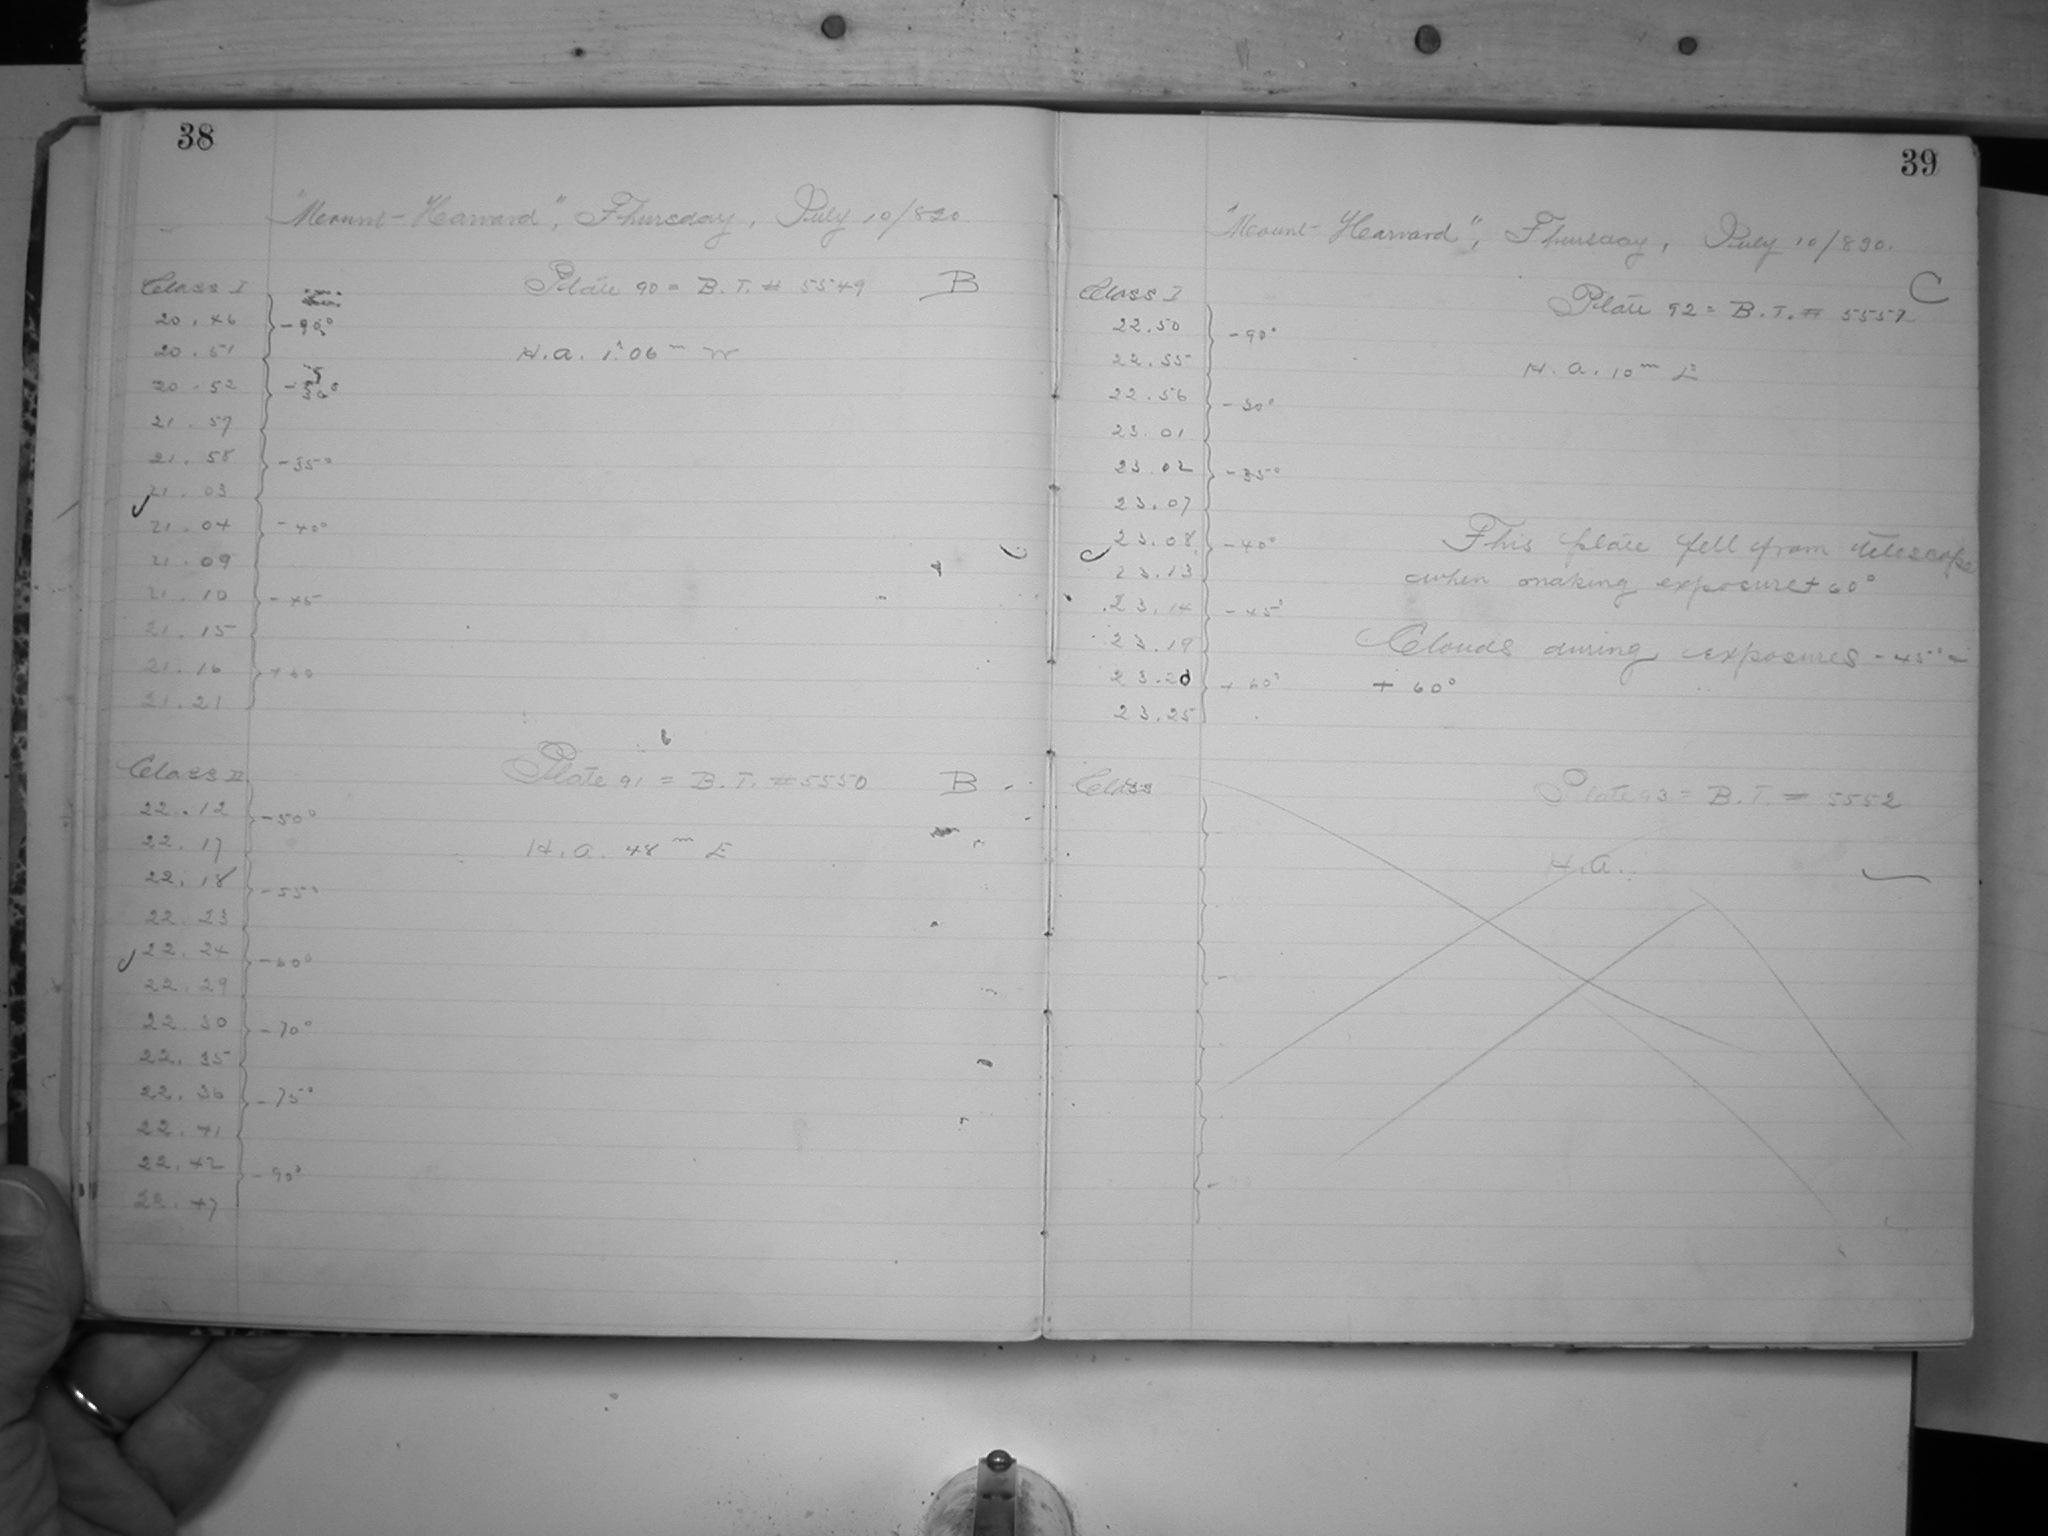 38
"Mount-Harvard", Thursday, July 10/890
Class I Plate 90 = B.T. # 5549 B
20.46 -90°
20.51 H.a. 1h 06m W
20.52 -30°
21.57
21.58 -35°
21.03
21.04 -40°
21.09
21.10 -45
21.15
21.16 +60
21.21
Class II Plate 91 = B.T. # 5550 B
22.12 -50°
22.17 H.a. 48m E
22.18 -55°
22.23
22.24 -60°
22.29
22.30 -70°
22.35
22.36 -75°
22.41
22.42 -90°
22.47
39
"Mount-Harvard", Thursday, July 10/890.
Class I Plate 92 = B.T. # 5551 C
22.50 -90°
22.55 H.a. 10m E
22.56 -30°
23.01
23.02 -35°
23.07
23.08 -40° This plate fell from telescope
23.13 when making exposure +60°
23.14 -45°
23.19 Clouds during exposures -45° &
23.20 +60° +60°
23.25
Class Plate 93 = B.T. # 5552
H.a.